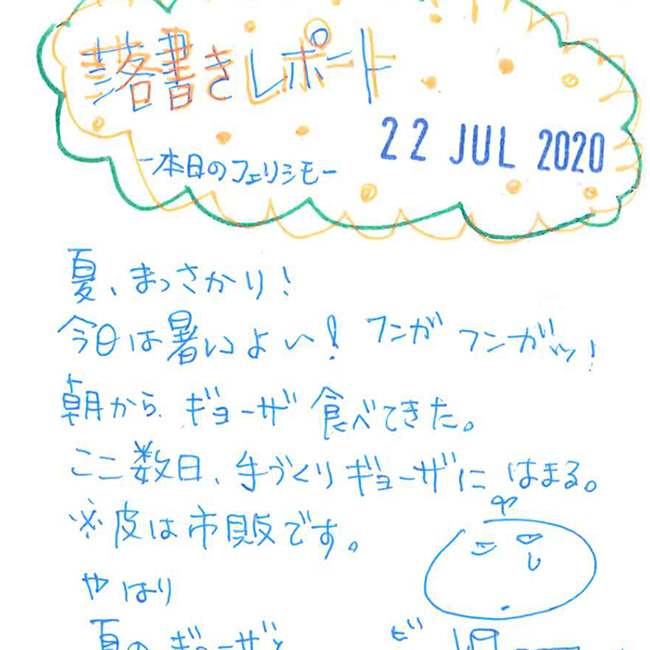 落書きレポート
22 JUL 2020
-本日のフェリシモ-
夏、まっさかり!
今日は暑いよい! フンガ フンガッ!
朝から、ギョーザ 食べてきた。
ここ数日、手づくりギョーザに はまる。
※皮は市販です。
やはり
夏の ギョーザと
ビ